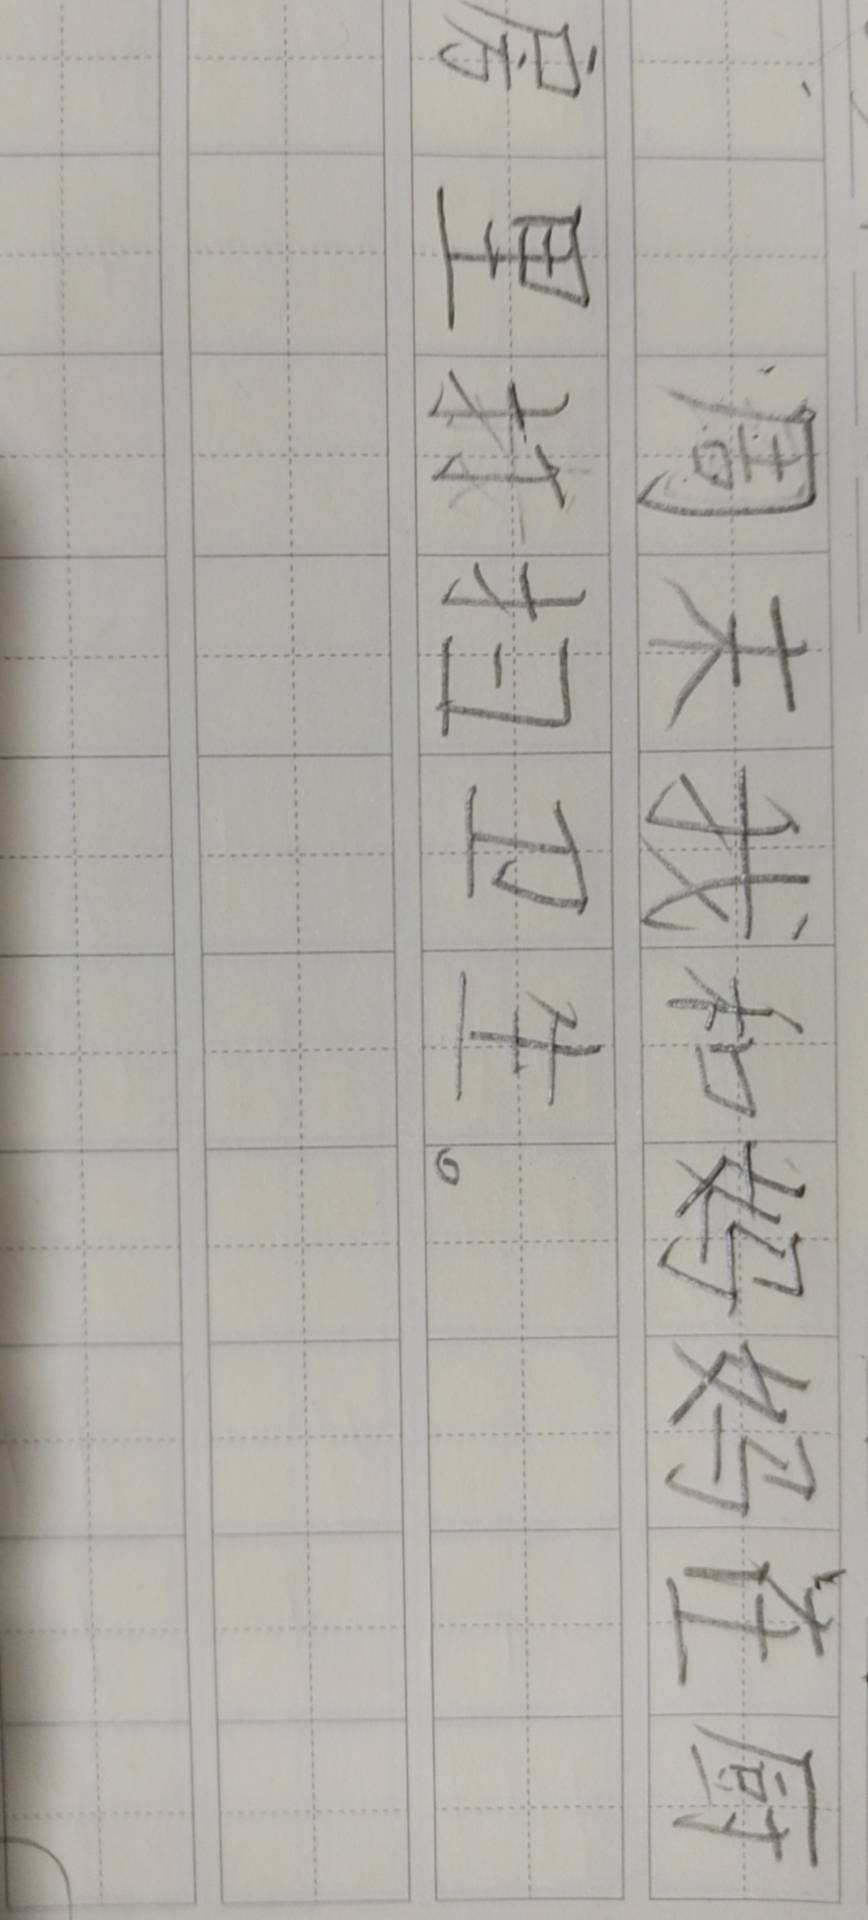 周末我和妈妈在厨
房里打扫卫生。